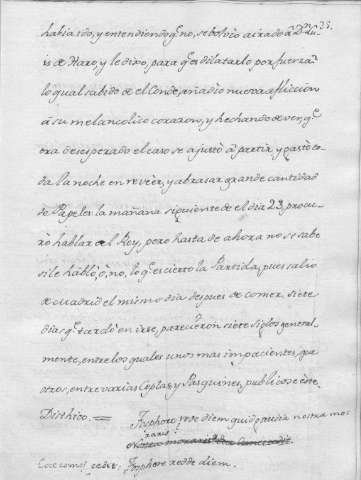 havia ido, y entendiendo q̃ no, se bolvio airado a D.n Lu-
is de Haro, y le dixo, para q̃ es dilatarlo por fuerza?
lo qual sabido de el Conde, añadio nueva afliccion
a su melancolico corazon, y hechando de ver q̃
era desesperado el caso se ajustò à partir, y gastò to-
da la noche en reveer, y abrasar grande cantidad
de Papeles la mañana siguiente de el dia 23, procu-
rò hablar al Rey, pero hasta de ahora no se sabe
si le habló, ò, no, lo q̃ es cierto la Partida, pues salió
de Madrid el mismo dia despues de comer, siete
dias q̃ tardò en irse, parecieron siete siglos general-
mente, entre los quales unos mas impacientes, que
otros, entre varias Coplas, y Pasquines, publicose este
Disthico.
diem quid nostra mo-
raris?
redde diem.